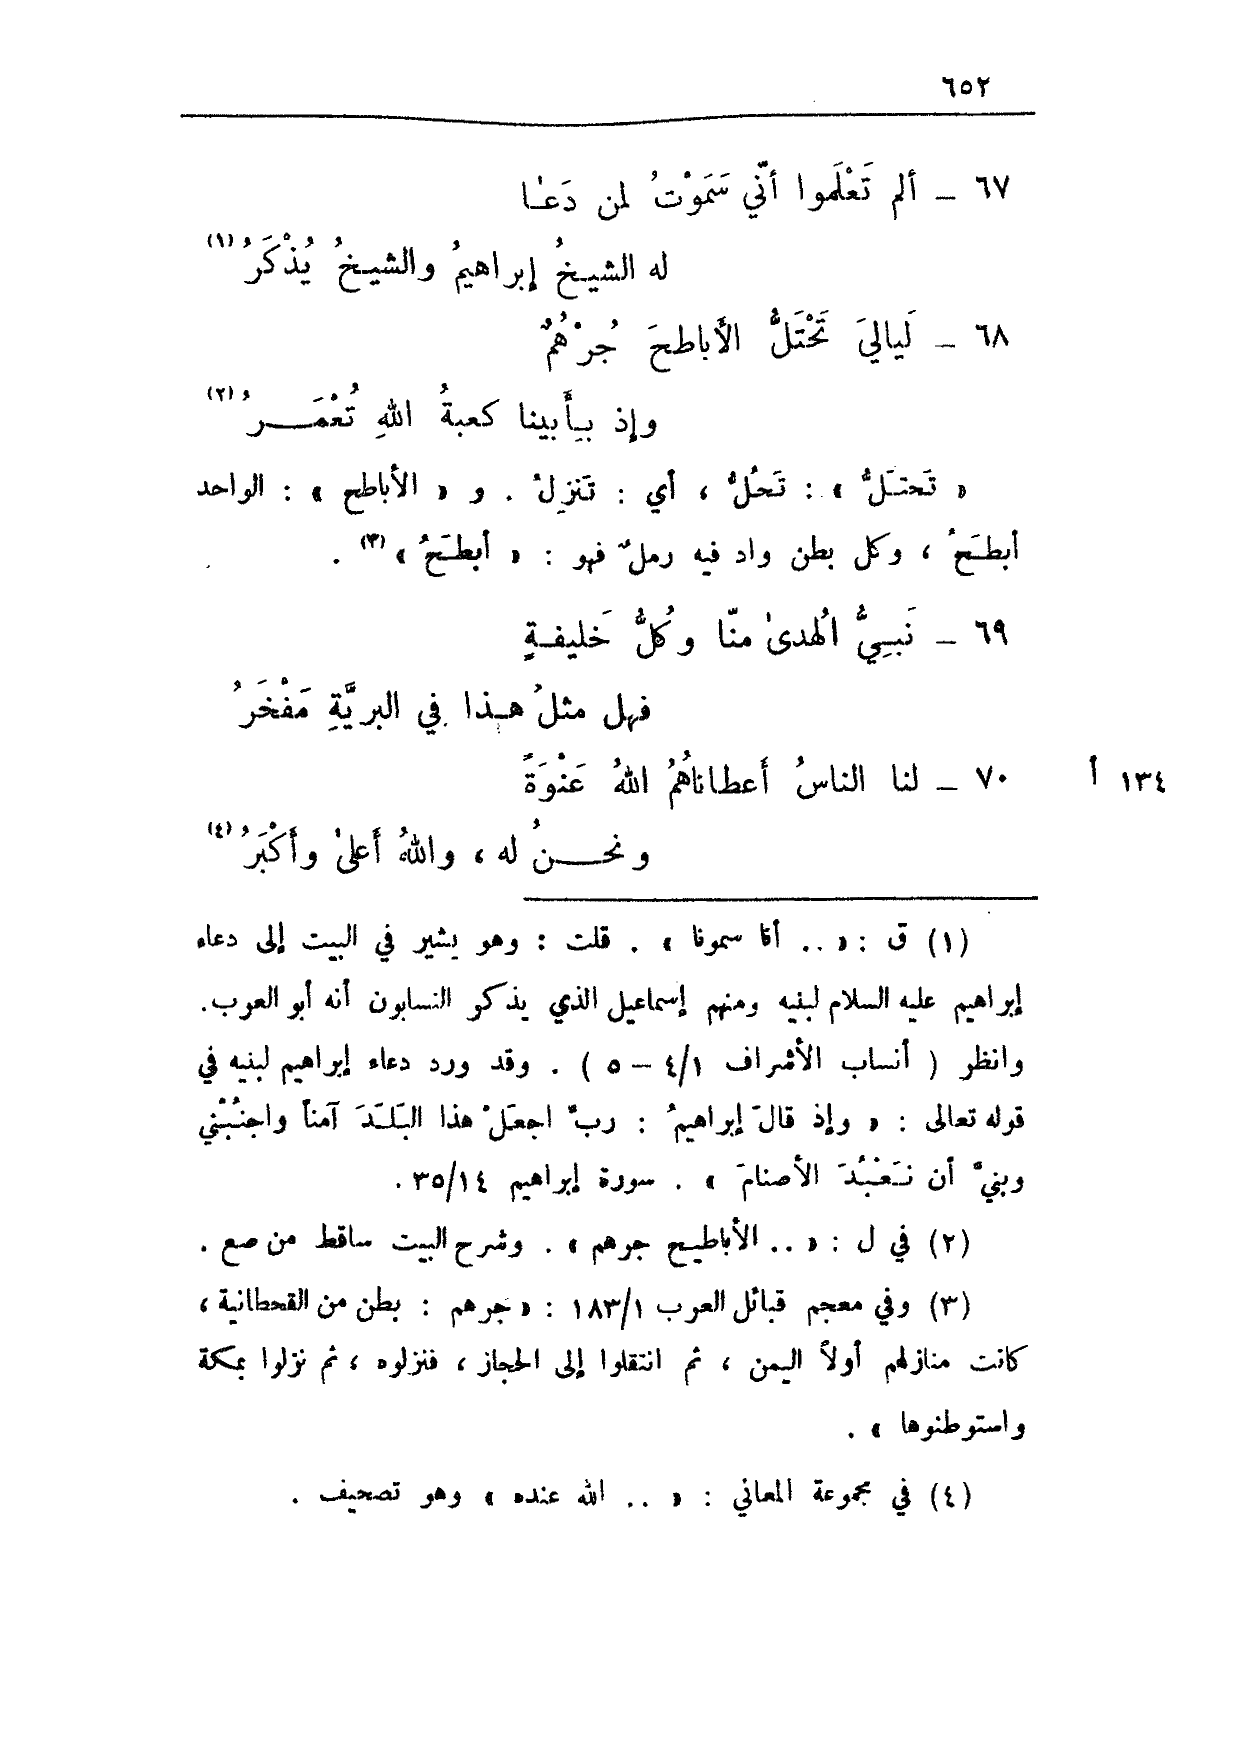 ٦٥٢
٦٧ ــ ألم تَعْلَموا أنّي سَمَوْتُ لمن دَعَا
له الشيخُ إبراهيمُ والشيخُ يُذْكَرُ (١)
٦٨ ــ لَياليَ تَحْتَلُّ الأَباطحَ جُرْهُمٌ
وإذ بأَبينا كعبةُ اللهِ تُعْمَرُ (٢)
« تَحتَلُّ » : تَحُلُّ ، أي : تَنزِلُ . و « الأباطح » : الواحد
أبطَحُ ، وكل بطن واد فيه رملٌ فهو : « أبطَحُ » (٣) .
٦٩ ــ نَبِيُّ الهُدىٰ منّا وكُلُّ خَليفةٍ
فهل مثلُ هذا في البريَّةِ مَفْخَرُ
٧٠ ــ لنا الناسُ أَعطاناهُمُ اللهُ عَنْوَةً
١٣٤ أ
ونحنُ له ، واللهُ أَعلىٰ وأَكْبَرُ (٤)
(١) ق : « .. أنا سمونا » . قلت : وهو يشير في البيت إلى دعاء
إبراهيم عليه السلام لبنيه ومنهم إسماعيل الذي يذكر النسابون أنه أبو العرب.
وانظر ( أنساب الأشراف ٤/١ – ٥ ) . وقد ورد دعاء إبراهيم لبنيه في
قوله تعالى : « وإذ قالَ إبراهيمُ : ربِّ اجعَلْ هذا البَلَدَ آمناً واجنُبْني
وبنيَّ أن نَعْبُدَ الأصنامَ » . سورة إبراهيم ٣٥/١٤ .
(٢) في ل : « .. الأباطيح جرهم » . وشرح البيت ساقط من صع .
(٣) وفي معجم قبائل العرب ١٨٣/١ : « جرهم : بطن من القحطانية ،
كانت منازلهم أولاً اليمن ، ثم انتقلوا إلى الحجاز ، فنزلوه ، ثم نزلوا بمكة
واستوطنوها » .
(٤) في مجموعة المعاني : « .. الله عنده » وهو تصحيف .